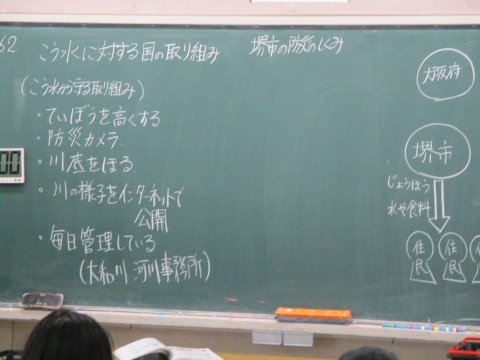 62
こう水に対する国の取り組み
堺市の防災のしくみ
(こう水から守る取り組み)
・ていぼうを高くする
・防災カメラ
・川底をほる
・川の様子をインターネットで
公開
・毎日管理している
(大和川 河川事務所)
大阪府
堺市
じょうほう
水や食料
住民
住民
住民
00